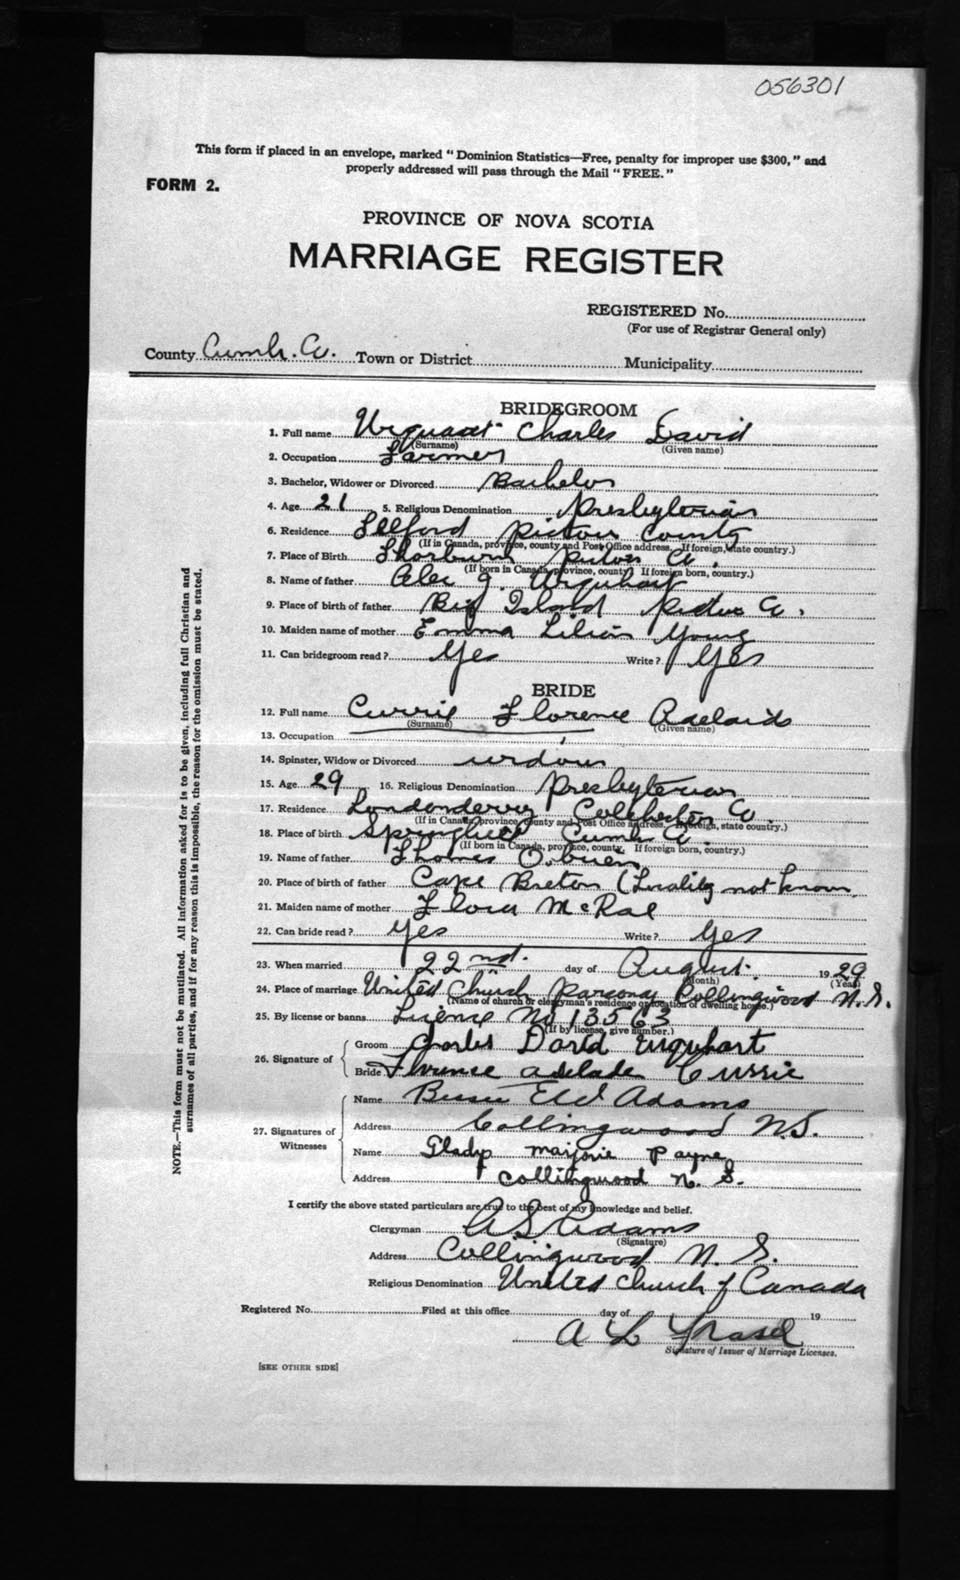 056301
This form if placed in an envelope, marked "Dominion Statistics—Free, penalty for improper use $300," and
properly addressed will pass through the Mail "FREE."
FORM 2.
PROVINCE OF NOVA SCOTIA
MARRIAGE REGISTER
REGISTERED No.
(For use of Registrar General only)
County Cumb. Co. Town or District Municipality
BRIDEGROOM
1. Full name Urquhart Charles David
(Surname) (Given name)
2. Occupation Farmer
3. Bachelor, Widower or Divorced Bachelor
4. Age 21 5. Religious Denomination Presbyterian
6. Residence Telford Pictou County
(If in Canada, province, county and Post Office address. If foreign, state country.)
7. Place of Birth Thorburn Pictou Co.
(If born in Canada, province, county. If foreign born, country.)
8. Name of father Alex J. Urquhart
9. Place of birth of father Big Island Pictou Co.
10. Maiden name of mother Emma Lilian Young
11. Can bridegroom read? Yes Write? Yes
BRIDE
12. Full name Currie Florence Adelaide
(Surname) (Given name)
13. Occupation
14. Spinster, Widow or Divorced widow
15. Age 29 16. Religious Denomination Presbyterian
17. Residence Londonderry Colchester Co.
(If in Canada, province, county and Post Office address. If foreign, state country.)
18. Place of birth Springhill Cumb Co.
(If born in Canada, province, county. If foreign born, country.)
19. Name of father Thomas O'brien
20. Place of birth of father Cape Breton (Locality not known
21. Maiden name of mother Flora McRae
22. Can bride read? Yes Write? Yes
23. When married 22nd. day of August. 1929
(Month) (Year)
24. Place of marriage United Church Parsonage Collingwood N.S.
(Name of church or clergyman's residence or location of dwelling house.)
25. By license or banns Licence No 13563
(If by license, give number.)
26. Signature of Groom Charles David Urquhart
Bride Florence Adelade Currie
27. Signatures of Witnesses
Name Bessie Adams
Address Collingwood N.S.
Name Gladys Marjorie Payne
Address Collingwood N. S.
I certify the above stated particulars are true to the best of my knowledge and belief.
Clergyman A S Adams
(Signature)
Address Collingwood N. S.
Religious Denomination United Church of Canada
Registered No. Filed at this office day of 19
A L Fraser
Signature of Issuer of Marriage Licenses.
[SEE OTHER SIDE]
NOTE.—This form must not be mutilated. All information asked for is to be given, including full Christian and
surnames of all parties, and if for any reason this is impossible, the reason for the omission must be stated.